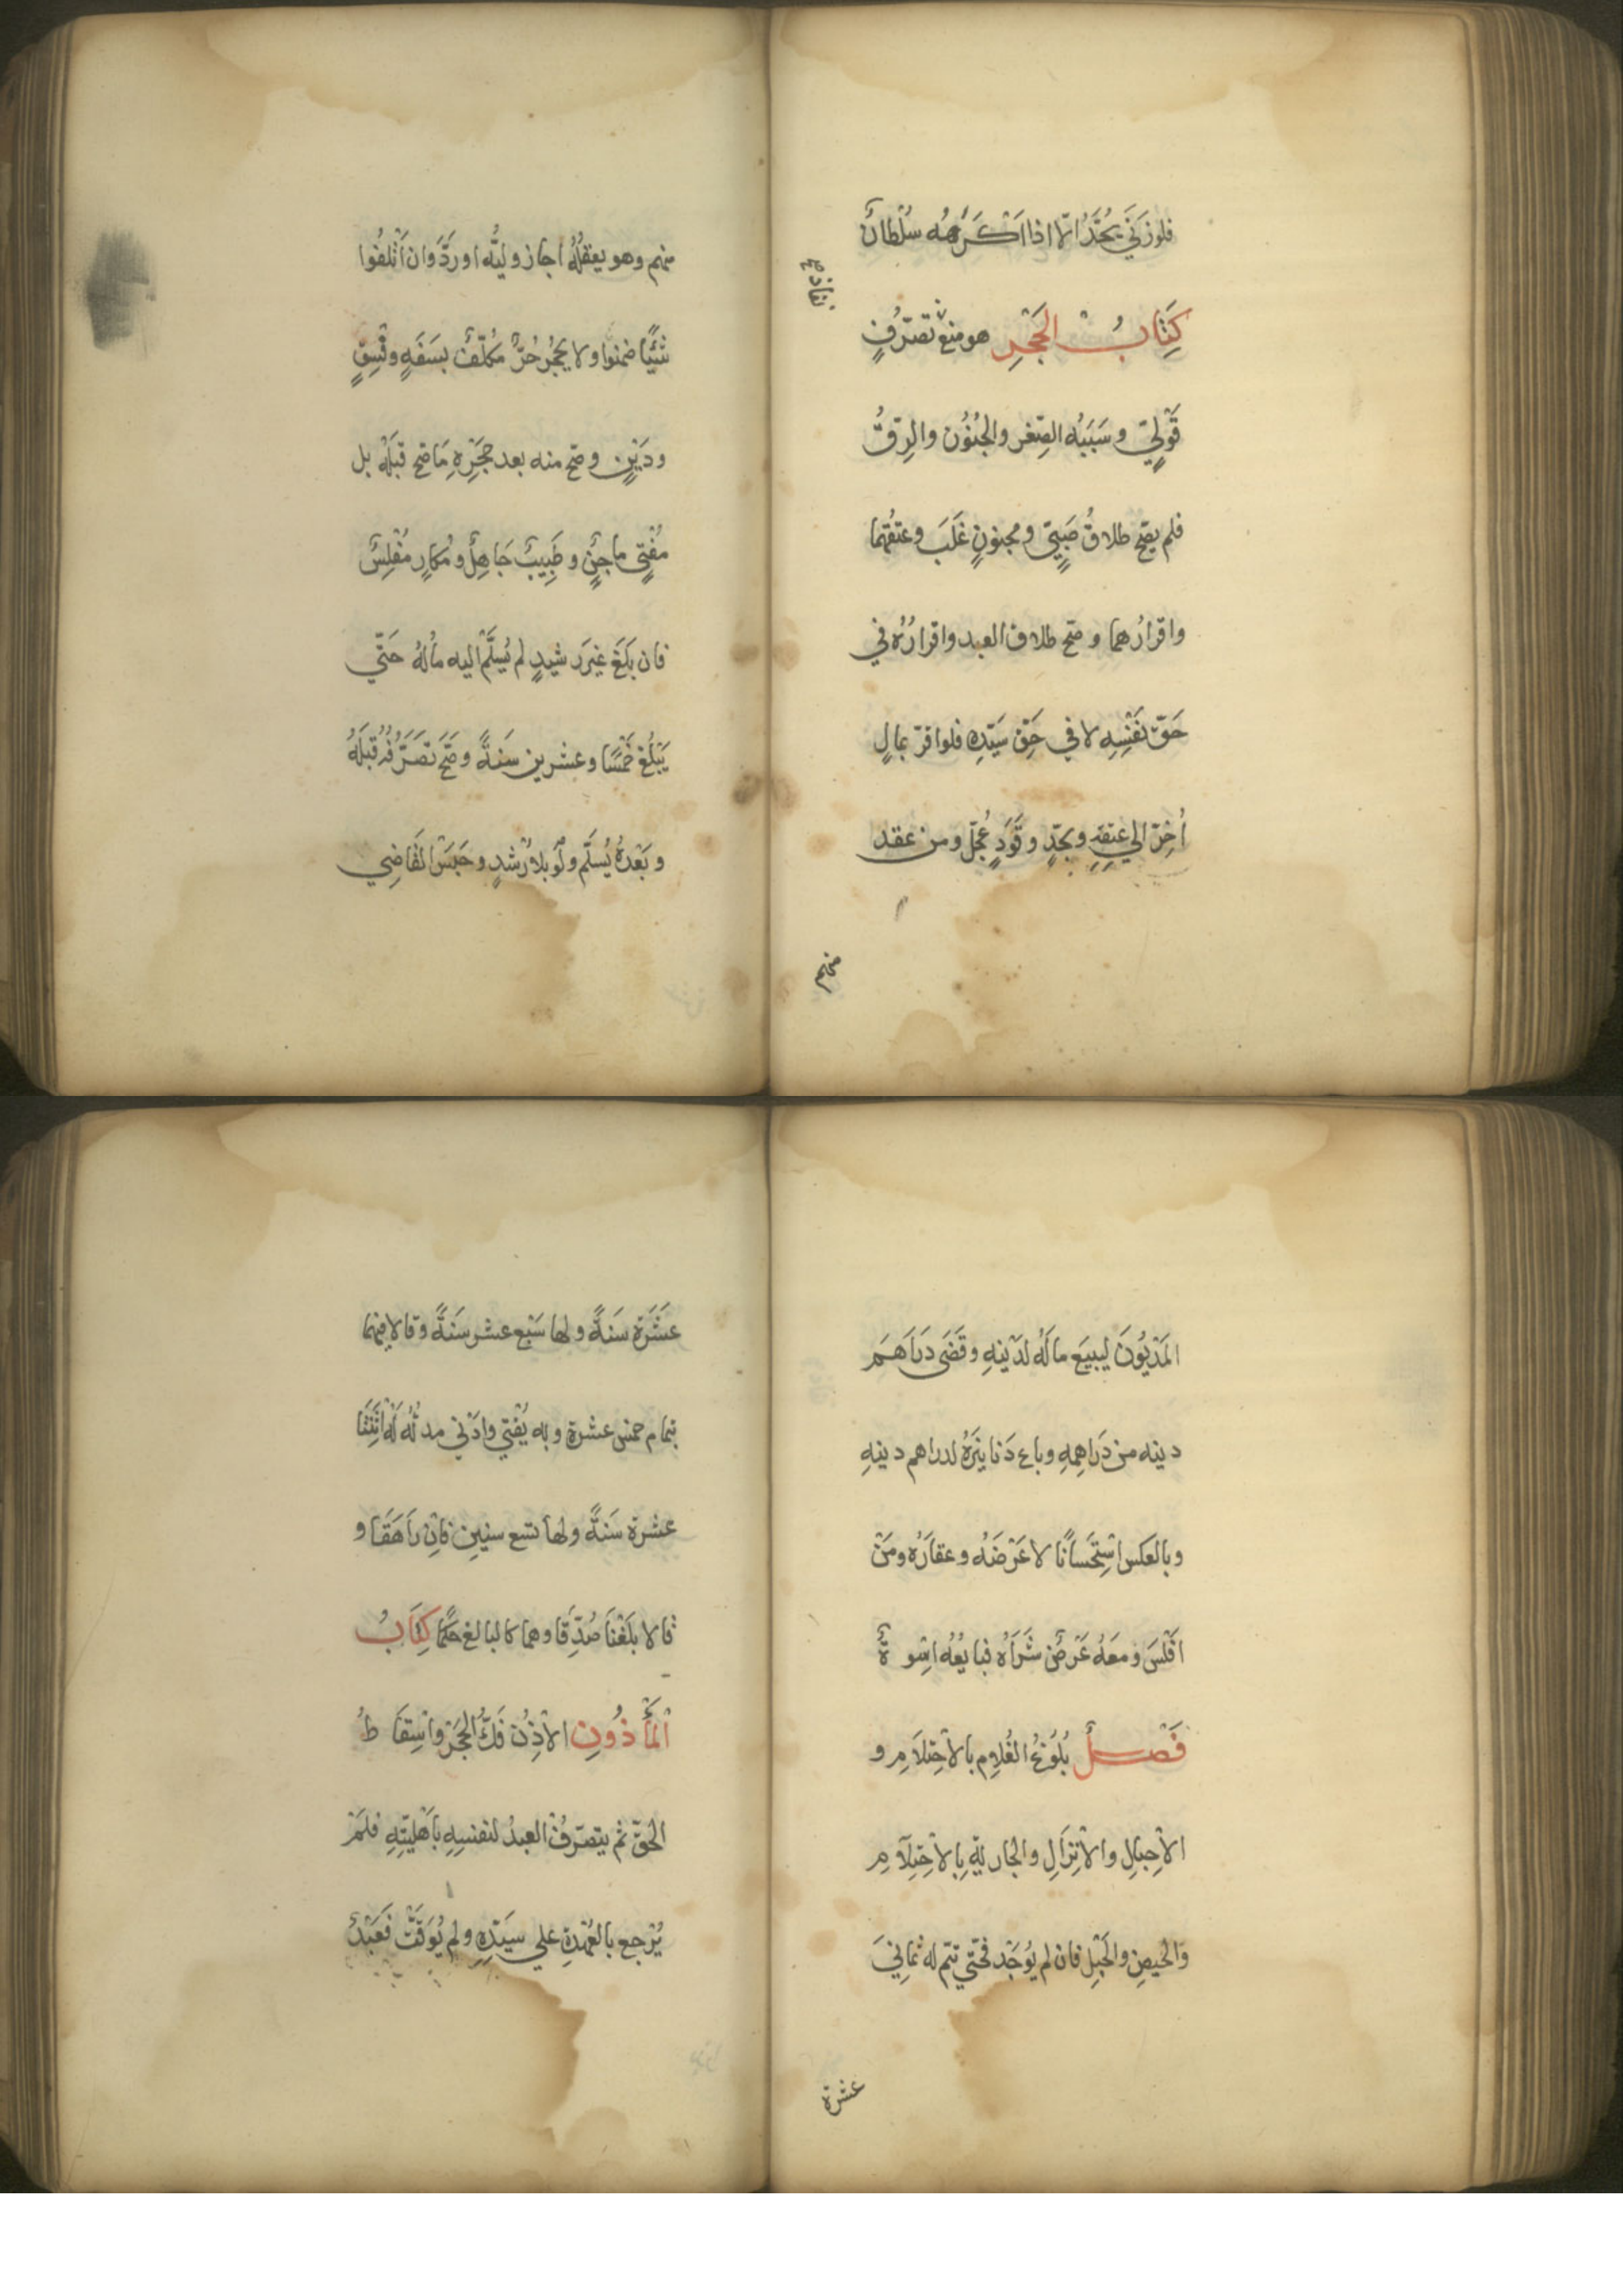 فلو زنى يُحَدُّ الّا اذا اَكْرَهَهُ سُلْطَانٌ
كِتَابُ الحَجْرِ هو منعُ تصرّفٍ
نفاذ
قَوْلِيٍّ وسَبَبُه الصِّغر والجُنُون والرِقُّ
فلم يصحّ طلاقُ صَبِيٍّ ومجنونٍ غَلَبَ وعتقُهما
واقرارُهما وصحّ طلاق العبد واقرارُه في
حَقّ نَفْسِهِ لا في حَقِّ سَيّدِهِ فلو اقرّ بمالٍ
اُخِّرَ الي عتقِهِ وبحَدٍّ وقَوَدٍ عُجِّلَ ومن عقد
منهم
منهم وهو يعقلُهُ اجاز وليُّه او ردَّ وان اَتْلفُوا
شَيْئًا ضمنوا ولا يحجُرُ حُرٌّ مكلّفٌ بسَفَهٍ وفِسْقٍ
ودَيْنٍ وصحّ منه بعد حَجْرِهِ مَا صحّ قبلَهُ بل
مُفْتٍ ماجنٌ وطَبِيبٌ جَاهِلٌ ومُكارٍ مُفْلِسٌ
فان بَلَغَ غيرَ رشيدٍ لم يُسَلَّم اليه مالُهُ حَتّي
يَبْلُغ خَمْسًا وعشرين سَنَةً وصَحّ تَصَرُّفُه قبلَهُ
وبَعْدَهُ يُسلَّم ولَوْ بلا رُشدٍ وحَبَسَ القَاضِي
المَدْيُونَ ليبيَع مالَهُ لدَيْنِهِ وقَضَى دَرَاهِمَ
دينه من دَرَاهِمِهِ وباع دَنانِيَرهُ لدراهم دينِهِ
وبالعكس اسْتِحْسَانًا لا عَرْضَهُ وعقارَه ومَنْ
اَفْلَسَ ومَعَهُ عَرْضٌ شَرَاهُ فبايعُهُ اسْوةٌ
فَصْلٌ بُلُوغُ الغُلامِ بالاحْتِلَامِ و
الاحبالِ والاِنْزَالِ والجاريةِ بِالاحْتِلَامِ
وَالحيضِ والحَبَلِ فان لم يُوْجَد فحَتّي تتم له ثَمَانِيَ
عشرة
عَشْرَة سَنَةً ولها سَبْع عشر سَنَةً وقالا فِيْهما
بتمام خمس عشرة وبه يُفْتي وادْني مدته لَهُ اثْنَتَا
عشرة سَنَةً ولها تسع سنين فاِنْ رَاهَقَا و
قالا بلَغْنَا صُدِّقَا وهما كالبالغ حكمًا كِتَابُ
الْمَأْذُونِ الاْذِنُ فَكُّ الحَجْرِ واِسْقَاطُ
الحقّ ثم يتصّرفُ العبدُ لنفسِهِ بأَهْلِيَّتِهِ فلمْ
يُرْجع بالعُهْدةِ علي سَيّدِهِ ولم يُوَقَّت فَعَبْدٌ